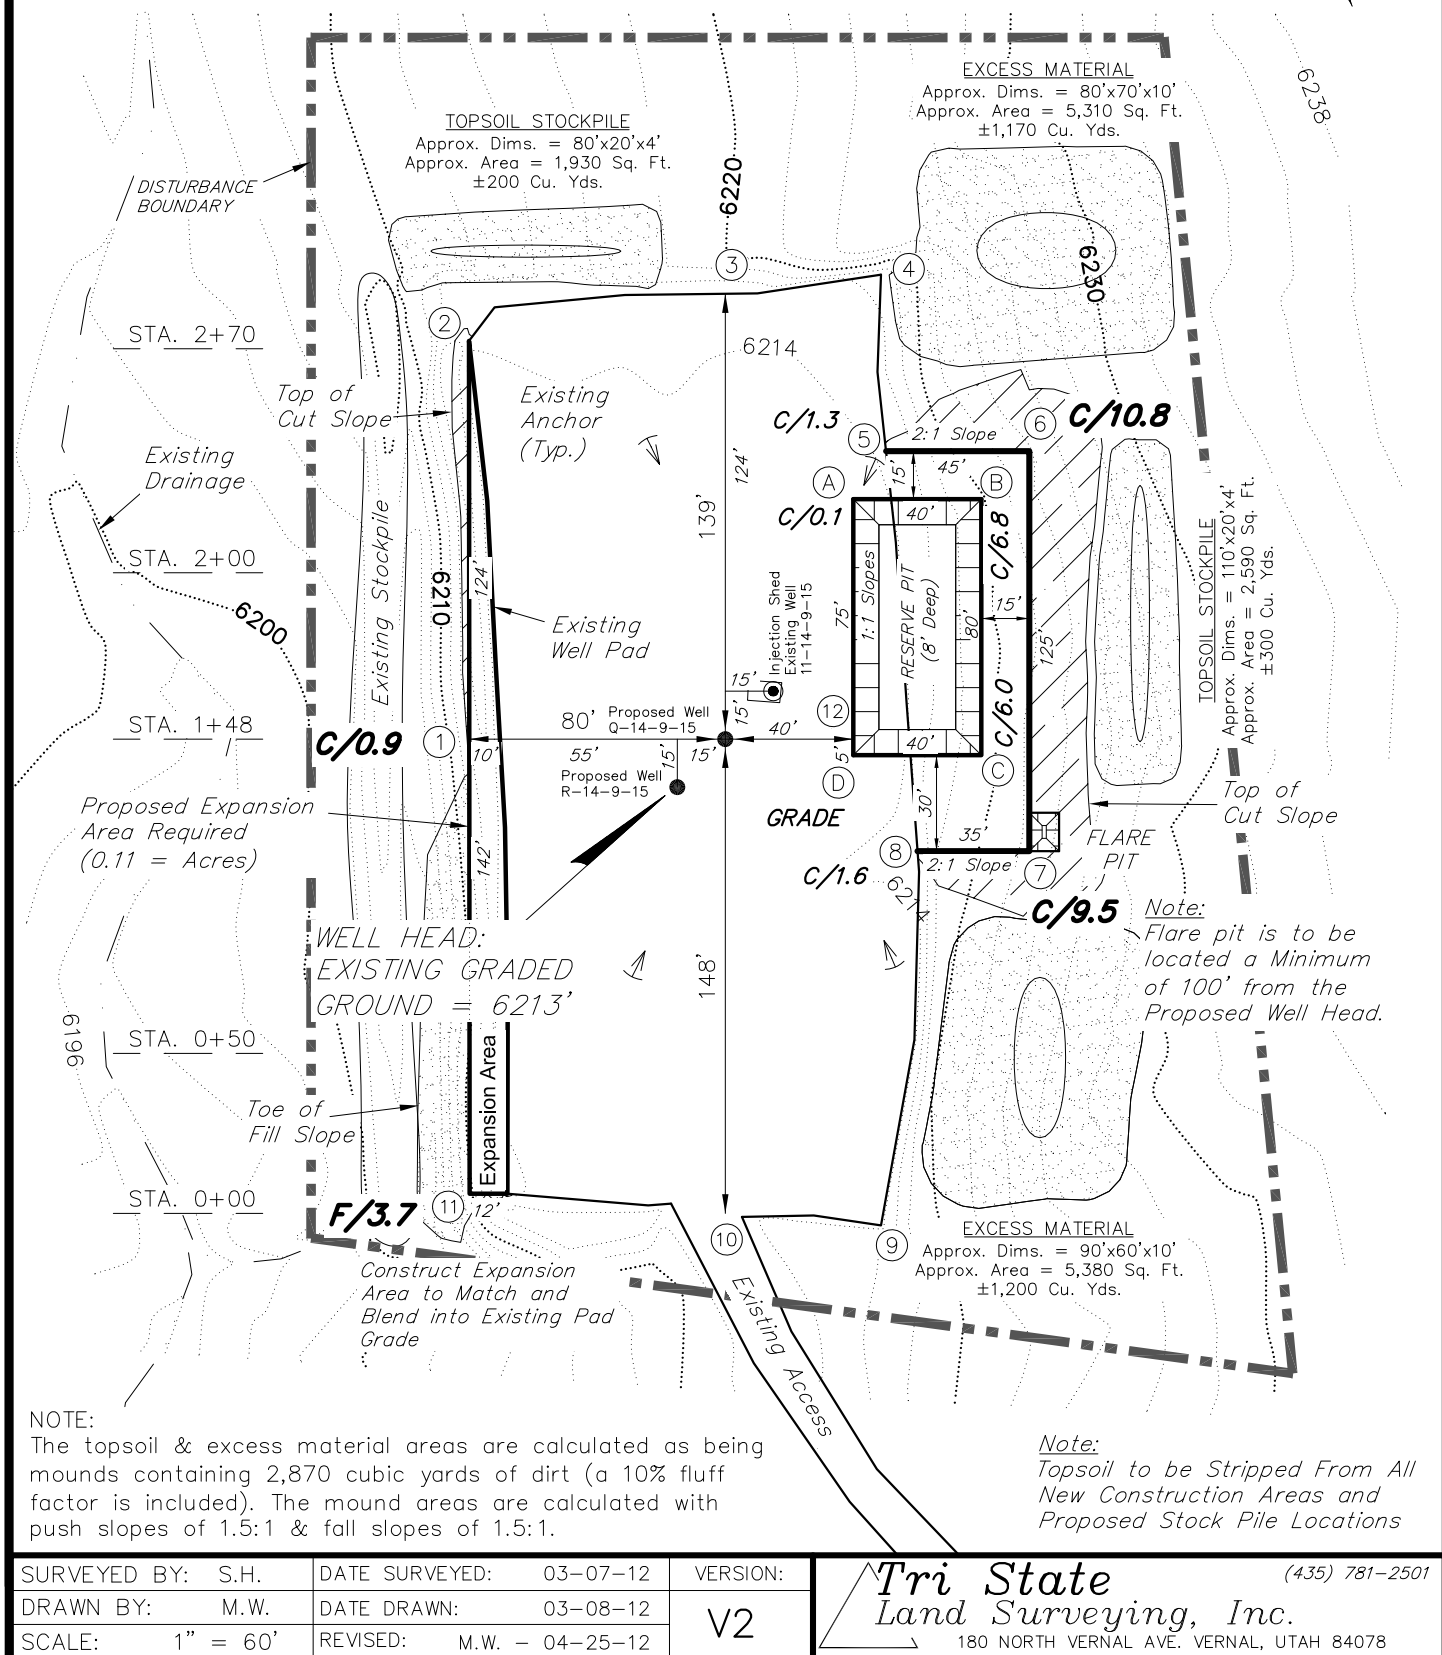 6238
EXCESS MATERIAL
Approx. Dims. = 80'x70'x10'
Approx. Area = 5,310 Sq. Ft.
±1,170 Cu. Yds.
TOPSOIL STOCKPILE
Approx. Dims. = 80'x20'x4'
Approx. Area = 1,930 Sq. Ft.
±200 Cu. Yds.
DISTURBANCE
BOUNDARY
6220
6230
3
4
2
STA. 2+70
6214
Top of
Cut Slope
Existing
Anchor
(Typ.)
C/1.3
5
2:1 Slope
6
C/10.8
Existing
Drainage
124'
139'
15'
45'
A
B
C/0.1
40'
C/6.8
STA. 2+00
6200
Existing Stockpile
6210
124'
Existing
Well Pad
Injection Shed
Existing Well
11-14-9-15
75'
1:1 Slopes
RESERVE PIT
(8' Deep)
80'
15'
125'
TOPSOIL STOCKPILE
Approx. Dims. = 110'x20'x4'
Approx. Area = 2,590 Sq. Ft.
±300 Cu. Yds.
15'
15'
C/6.0
STA. 1+48
C/0.9
1
10'
80'
55'
Proposed Well
Q-14-9-15
15'
15'
40'
12
5'
40'
D
C
Proposed Well
R-14-9-15
Proposed Expansion
Area Required
(0.11 = Acres)
142'
GRADE
30'
35'
8
2:1 Slope
7
FLARE
PIT
Top of
Cut Slope
C/1.6
6214
C/9.5
Note:
Flare pit is to be
located a Minimum
of 100' from the
Proposed Well Head.
WELL HEAD:
EXISTING GRADED
GROUND = 6213'
148'
6196
STA. 0+50
Expansion Area
Toe of
Fill Slope
STA. 0+00
F/3.7
11
12'
10
9
EXCESS MATERIAL
Approx. Dims. = 90'x60'x10'
Approx. Area = 5,380 Sq. Ft.
±1,200 Cu. Yds.
Construct Expansion
Area to Match and
Blend into Existing Pad
Grade
Existing Access
NOTE:
The topsoil & excess material areas are calculated as being
mounds containing 2,870 cubic yards of dirt (a 10% fluff
factor is included). The mound areas are calculated with
push slopes of 1.5:1 & fall slopes of 1.5:1.
Note:
Topsoil to be Stripped From All
New Construction Areas and
Proposed Stock Pile Locations
SURVEYED BY: S.H.
DATE SURVEYED: 03-07-12
VERSION:
DRAWN BY: M.W.
DATE DRAWN: 03-08-12
V2
SCALE: 1" = 60'
REVISED: M.W. - 04-25-12
Tri State
(435) 781-2501
Land Surveying, Inc.
180 NORTH VERNAL AVE. VERNAL, UTAH 84078